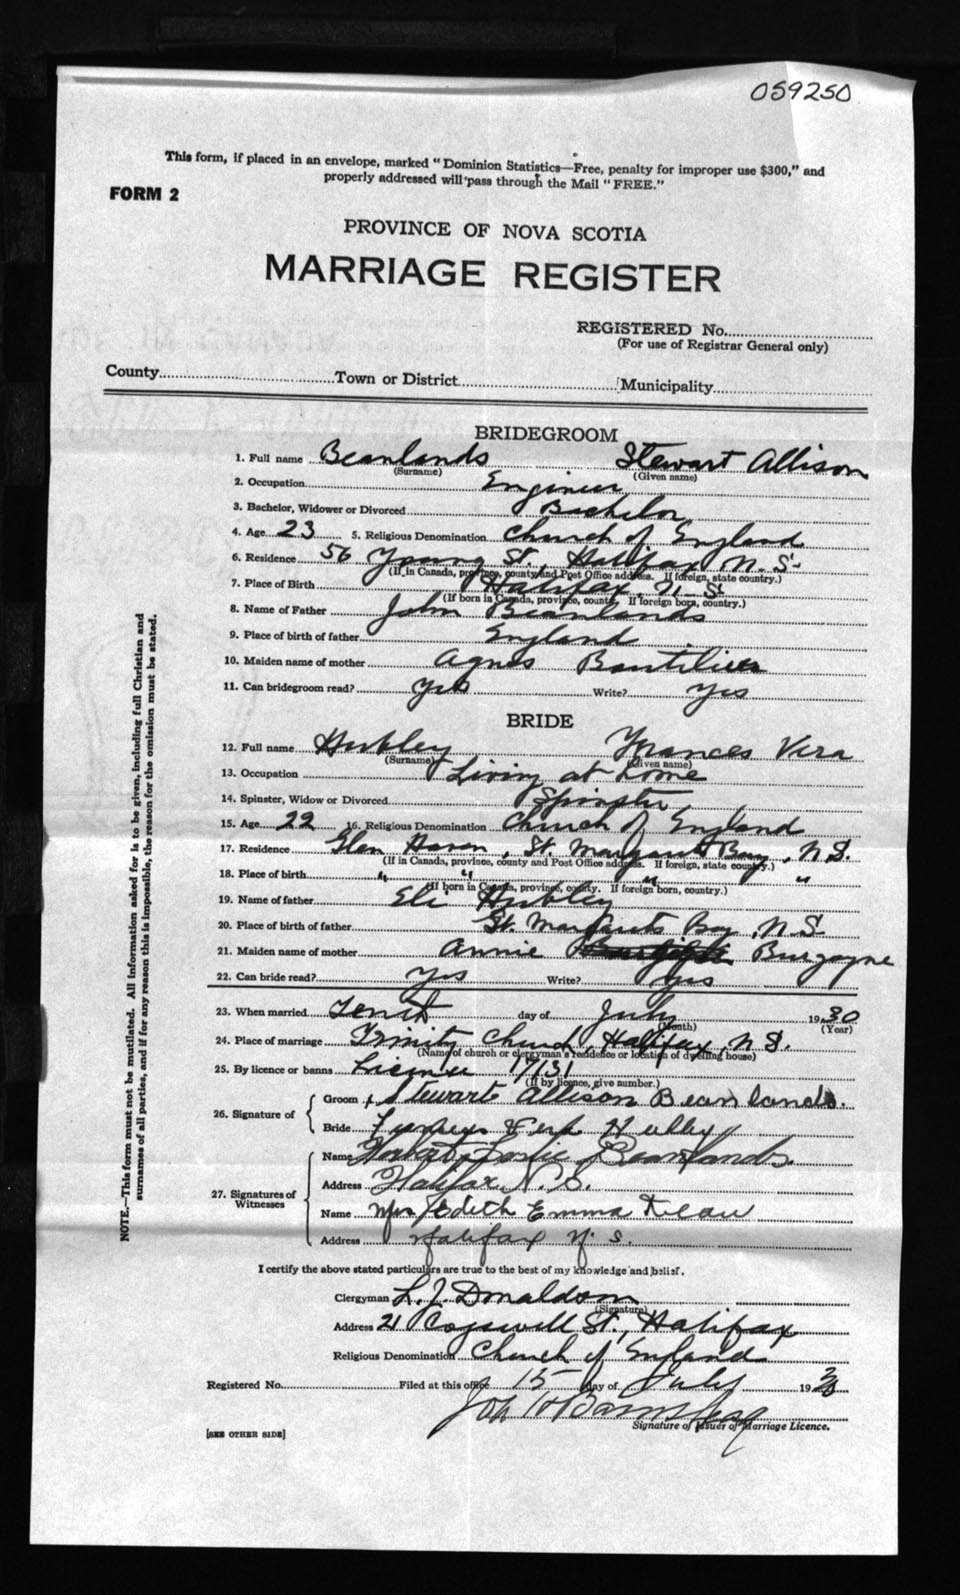 059250
This form, if placed in an envelope, marked "Dominion Statistics—Free, penalty for improper use $300," and
properly addressed will pass through the Mail "FREE."
FORM 2
PROVINCE OF NOVA SCOTIA
MARRIAGE REGISTER
REGISTERED No.
(For use of Registrar General only)
County Town or District Municipality
BRIDEGROOM
1. Full name Beanlands Stewart Allison
(Surname) (Given name)
2. Occupation Engineer
3. Bachelor, Widower or Divorced Bachelor
4. Age 23 5. Religious Denomination Church of England
6. Residence 56 Young St., Halifax N.S.
(If in Canada, province, county and Post Office address. If foreign, state country.)
7. Place of Birth Halifax, N.S
(If born in Canada, province, county. If foreign born, country.)
8. Name of Father John Beanlands
9. Place of birth of father England
10. Maiden name of mother Agnes
11. Can bridegroom read? yes Write? yes
BRIDE
12. Full name Hubley Frances Vera
(Surname) (Given name)
13. Occupation Living at home
14. Spinster, Widow or Divorced Spinster
15. Age 22 16. Religious Denomination Church of England
17. Residence Glen Haven, St. Margarets Bay, N.S.
(If in Canada, province, county and Post Office address. If foreign, state country.)
18. Place of birth " " " "
(If born in Canada, province, county. If foreign born, country.)
19. Name of father Eli Hubley
20. Place of birth of father St. Margarets Bay, N.S.
21. Maiden name of mother Annie Burgoyne
22. Can bride read? yes Write? yes
23. When married Tenth day of July 1930
(Month) (Year)
24. Place of marriage Trinity Church, Halifax, N.S.
(Name of church or clergyman's residence or location of dwelling house)
25. By licence or banns License 17131
(If by licence, give number.)
26. Signature of
Groom x Stewart Allison Beanlands.
Bride Frances Vera Hubley
27. Signatures of Witnesses
Name Herbert Leslie Beanlands
Address Halifax N.S.
Name Mrs Edith Emma
Address Halifax N.S.
I certify the above stated particulars are true to the best of my knowledge and belief.
Clergyman L. J. Donaldson
(Signature)
Address 21 Cogswell St., Halifax
Religious Denomination Church of England
Registered No. Filed at this office 15 day of July 1930
Signature of Issuer of Marriage Licence.
[SEE OTHER SIDE]
NOTE.—This form must not be mutilated. All information asked for is to be given, including full Christian and
surnames of all parties, and if for any reason this is impossible, the reason for the omission must be stated.